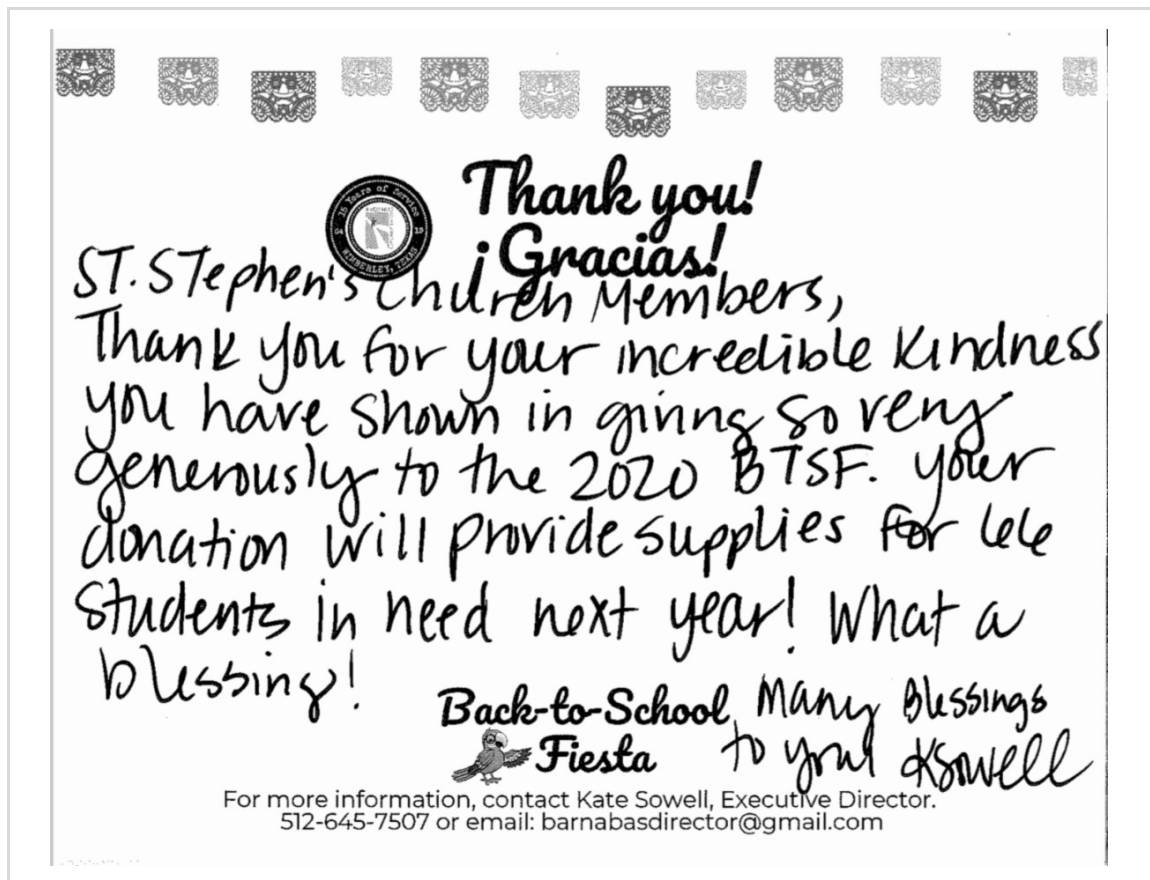 Thank you!
¡Gracias!
15 Years of Service
04 19
WIMBERLEY, TEXAS
ST. Stephen's Church Members,
Thank you for your incredible kindness
you have shown in giving so very
generously to the 2020 BTSF. your
donation will provide supplies for 66
students in need next year! What a
blessing!
Back-to-School
Fiesta
Many Blessings
to you! KSowell
For more information, contact Kate Sowell, Executive Director.
512-645-7507 or email: barnabasdirector@gmail.com